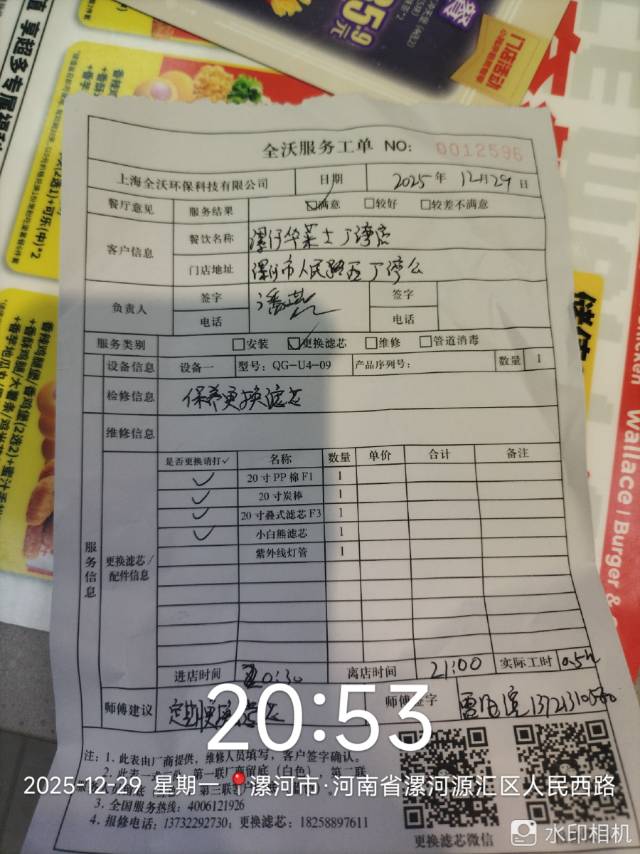 餐
25.9元
门店活动
全沃服务工单 NO: 0012596
上海全沃环保科技有限公司 日期 2025年12月29日
餐厅意见 服务结果 ☑满意 □较好 □较差不满意
客户信息 餐饮名称 漯河华莱士丁湾店
门店地址 漯河市人民路西丁湾公
负责人 签字 签字
电话 电话
服务类别 □安装 ☑更换滤芯 □维修 □管道消毒
设备信息 设备一 型号: QG-U4-09 产品序列号: 数量 1
检修信息 保养更换滤芯
维修信息
服务信息
更换滤芯/配件信息
是否更换请打✓ 名称 数量 单价 合计 备注
✓ 20寸PP棉F1 1
✓ 20寸炭棒 1
✓ 20寸叠式滤芯F3 1
✓ 小白熊滤芯 1
紫外线灯管 1
进店时间 20:30 离店时间 21:00 实际工时 0.5h
师傅建议 定期更换滤芯 师傅签字
20:53
注: 1. 此表由厂商提供, 维修人员填写, 客户签字确认。
2025-12-29 星期一 漯河市·河南省漯河源汇区人民西路
3. 全国服务热线: 4006121926
4. 报修电话: 13732292730; 更换滤芯: 18258897611
更换滤芯微信
水印相机
Wallace | Burger &